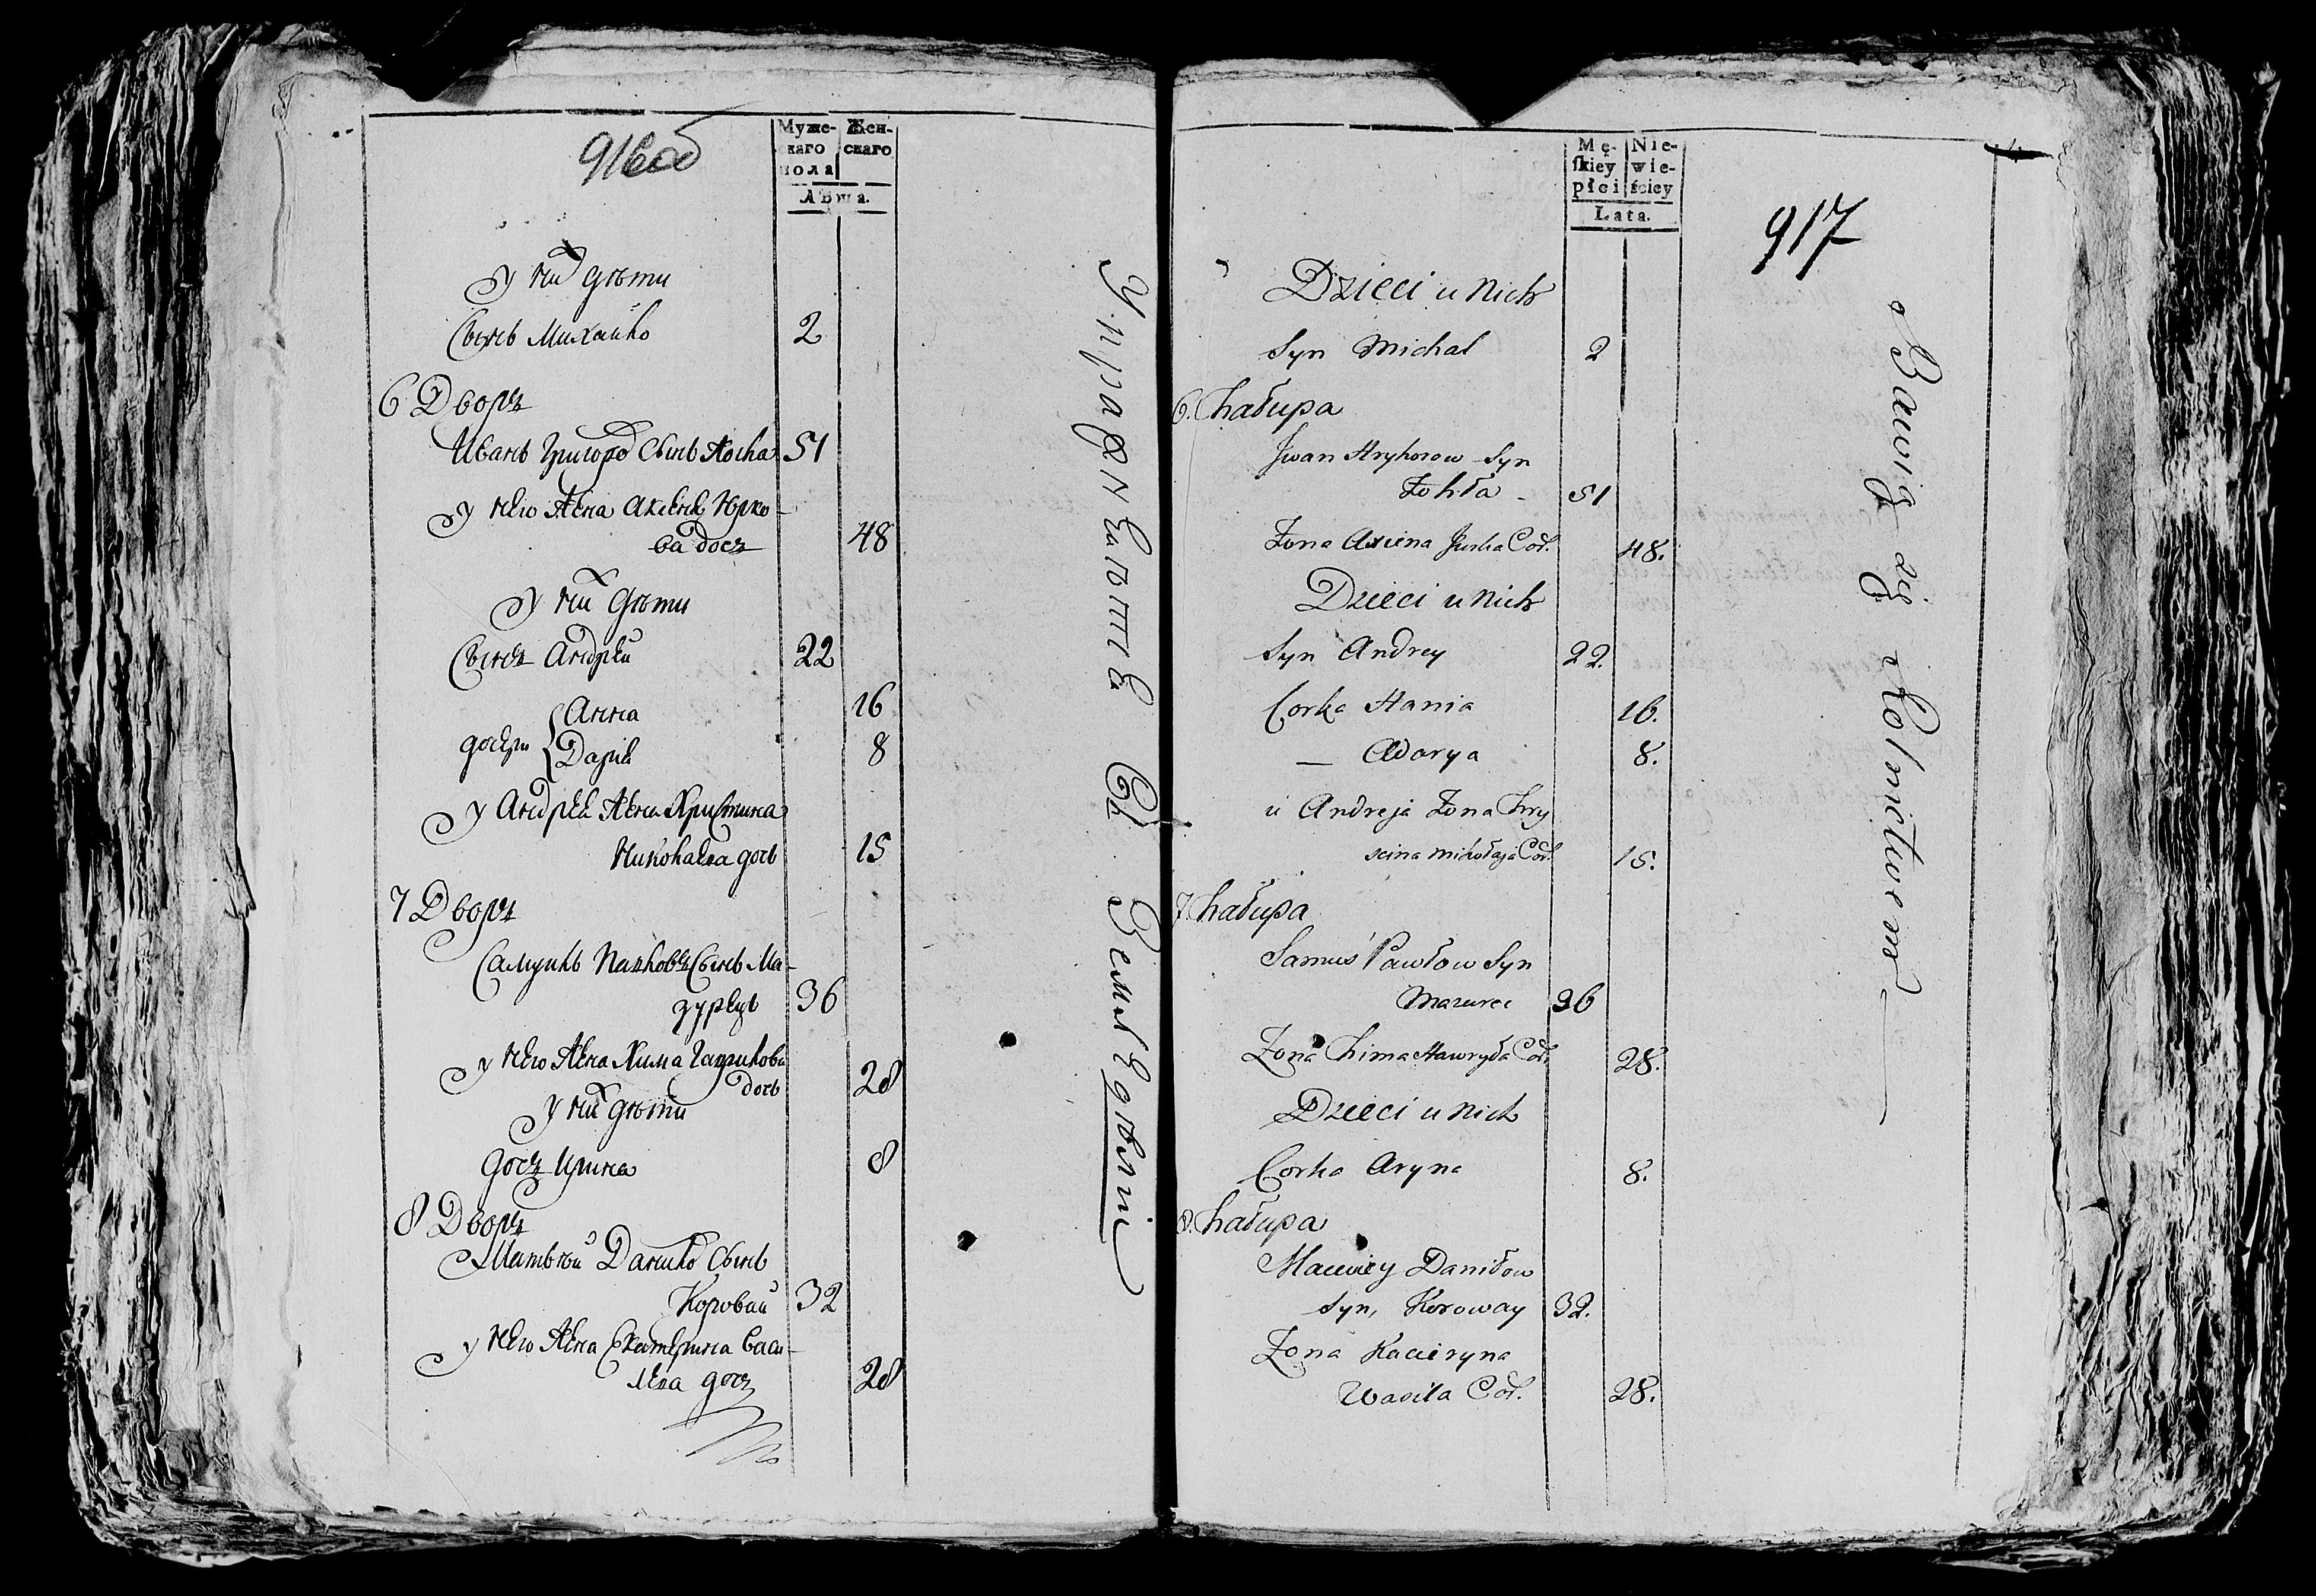 916об
Муже-
скаго
пола
Жен-
скаго
Лѣта.
У них дѣти
Сынъ Михайло 2
6 Дворъ
Иванъ Григоро Сынъ Жолна 51
у него Жена Аксенѣ Юрко-
ва дочъ 48
У них дѣти
Сынъ Андрей 22
дочери
Анна 16
Дарiя 8
У Андрея Жена Христина
Николаева дочь 15
7 Дворъ
Самуилъ Павловъ Сынъ Ма-
зурецъ 36
у него Жена Хима Гаврилова
дочь 28
У них дѣти
дочъ Ирина 8
8 Дворъ
Матвѣй Данило Сынъ
Коровай 32
у него Жена Екатерина Васи-
лева дочъ 28
Упражняется въ Земледѣліи
Mę-
skiey
płci
Nie-
wie-
ściey
Lata.
917
Dzieci u Nich
Syn Michał 2
6. Chałupa
Jwan Hryhorow Syn
Żołna 51
Żona Axiena Jurka Cor. 48.
Dzieci u Nich
Syn Andrey 22.
Corka Hania 16.
— Adarya 8.
u Andreja Żona Chry
scina Mikołaja Cor. 15.
7. Chałupa
Samuś Pawłow Syn
Mazurec 36
Żona Chima Hawryła Cor. 28.
Dzieci u Nich
Corka Aryna 8.
8. Chałupa
Maciwiey Daniłow
Syn, Koroway 32.
Żona Kacieryna
Wasila Cor. 28.
Bawią się Rolnictwem